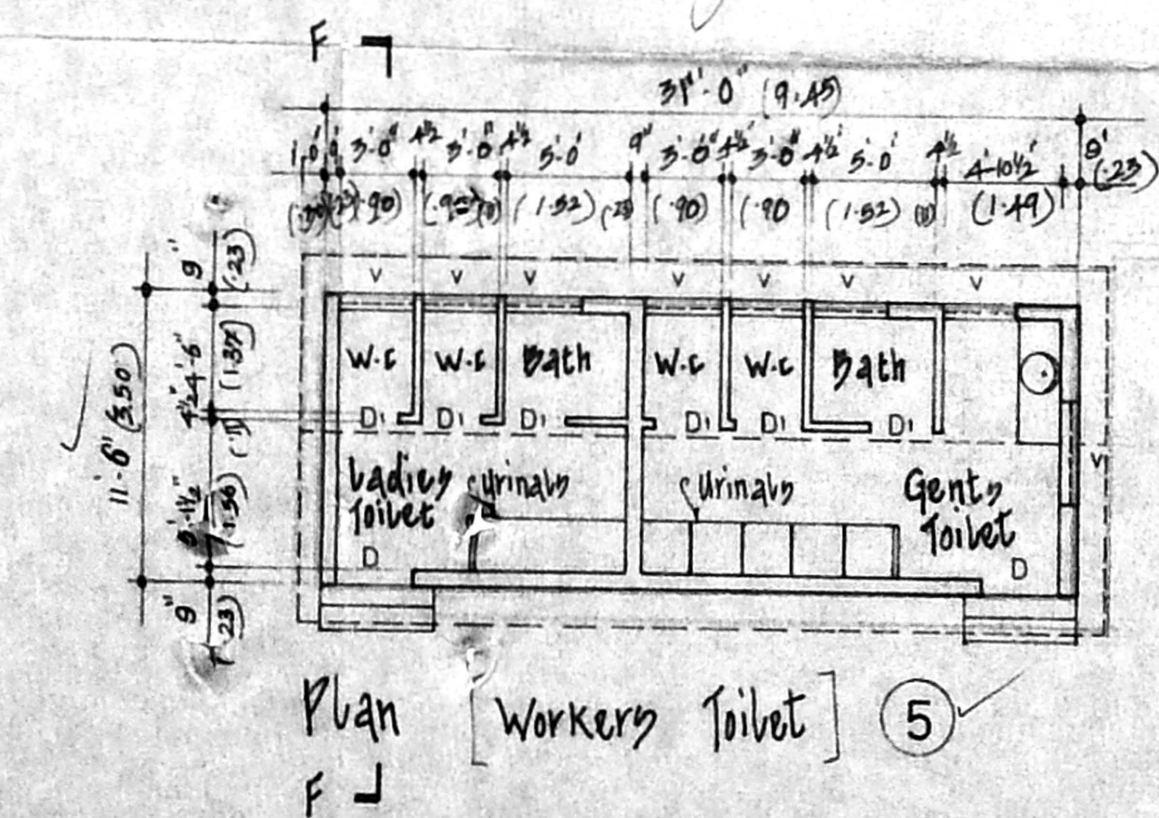 F
31'-0" (9.45)
1'0" 9" 3'-0" 4½ 3'-0" 4½ 5'-0" 9" 3'-0" 4½ 3'-0" 4½ 5'-0" 4½ 4'-10½" 9"
(.90) (1.52) (.23) (.90) (.90 (1.52) (11) (1.49) (.23)
V V V V V V V
9" (.23)
4'-6" (1.37)
4½"
11'-6" (3.50)
9" (.23)
W.C W.C Bath W.C W.C Bath
D1 D1 D1 D1 D1 D1
V
Ladies Toilet
Urinals
Urinals
Gents Toilet
D
D
Plan [Workers Toilet] 5
F